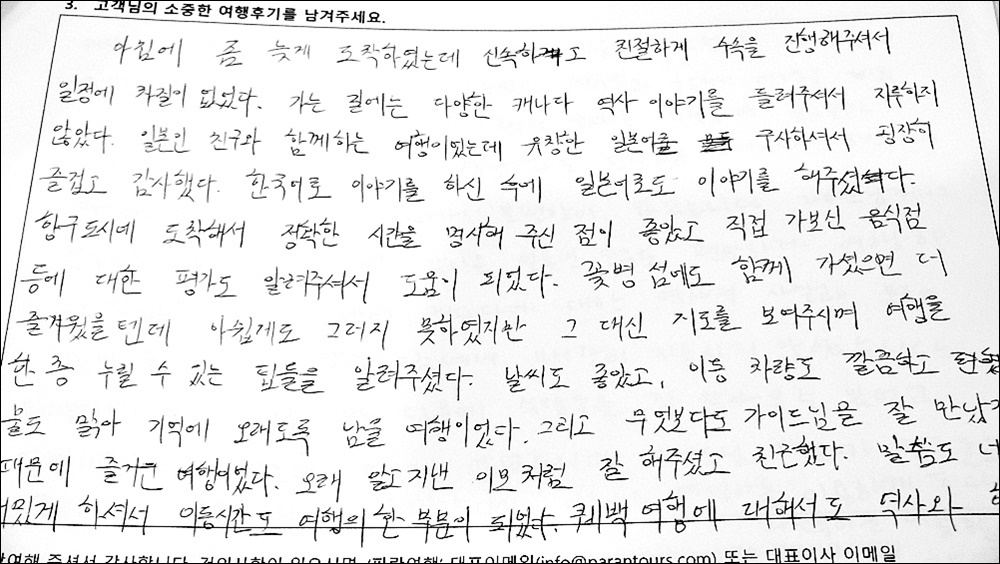 3. 고객님의 소중한 여행후기를 남겨주세요.
아침에 좀 늦게 도착하였는데 신속하고 친절하게 수속을 진행해주셔서
일정에 차질이 없었다. 가는 길에는 다양한 캐나다 역사 이야기를 들려주셔서 지루하지
않았다. 일본인 친구와 함께하는 여행이었는데 유창한 일본어를 구사하셔서 굉장히
즐겁고 감사했다. 한국어로 이야기를 하신 후에 일본어로도 이야기를 해주셨다.
항구도시에 도착해서 정확한 시간을 명시해 주신 점이 좋았고 직접 가보신 음식점
등에 대한 평가도 알려주셔서 도움이 되었다. 꽃병 섬에도 함께 가셨으면 더
즐거웠을텐데 아쉽게도 그러지 못하였지만 그 대신 지도를 보여주시며 여행을
한층 누릴 수 있는 팁들을 알려주셨다. 날씨도 좋았고, 이동 차량도 깔끔하고
물도 맑아 기억에 오래도록 남을 여행이었다. 그리고 무엇보다도 가이드님을 잘 만났기
때문에 즐거운 여행이었다. 오래 알고지낸 이모처럼 잘 해주셨고 친근했다. 말씀도
하셔서 이동시간도 여행의 한 부분이 되었다. 퀘벡 여행에 대해서도 역사와
주셔서 감사합니다. 건의사항이 있으시면, (파란여행: 대표이메일(info@parantours.com) 또는 대표이사 이메일